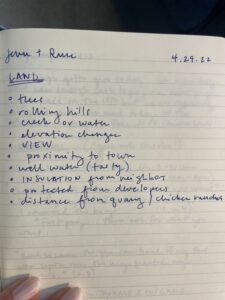 + Russ
4.29.22
LAND
• trees
• rolling hills
• creek or water
• elevation changes
• VIEW
• proximity to town
• well water (tasty)
• INSULATION from neighbor
• protected from developers
• distance from quarry / chicken ranches